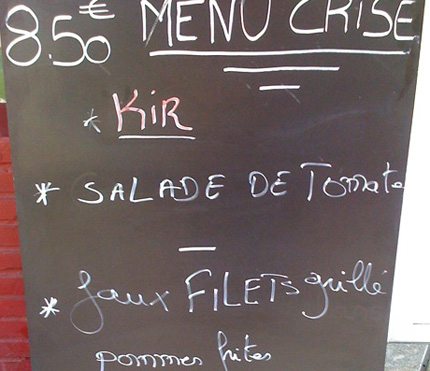 8.50 € MENU CRISE
* KIR
* SALADE DE Tomate
* faux FILETs grillé
pommes frites